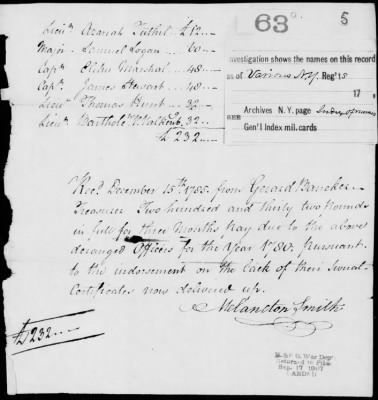 63
5
Lieut Azariah Tuthil £12
Major Samuel Logan 60
Capt Elihu Marshal 48
Capt James Stewart 48
Lieut Thomas Hunt 32
Lieut Barthol V. Valkenb. 32
£ 232
nvestigation shows the names on this record
as of Various N.Y. Reg'ts
17 .
Archives N.Y. page
SEE
Gen'l Index mil. cards
Recd December 15th 1785 from Gerard Bancker
Treasurer Two hundred and thirty two Pounds
in full for three Months Pay due to the above
deranged Officers for the Year 1780. pursuant
to the indorsement on the back of their Sevral
Certificates now delivered up.
Melancton Smith
£232
R. & P. O. War Dep.
Returned to Files
Sep. 17 1907
CARDED